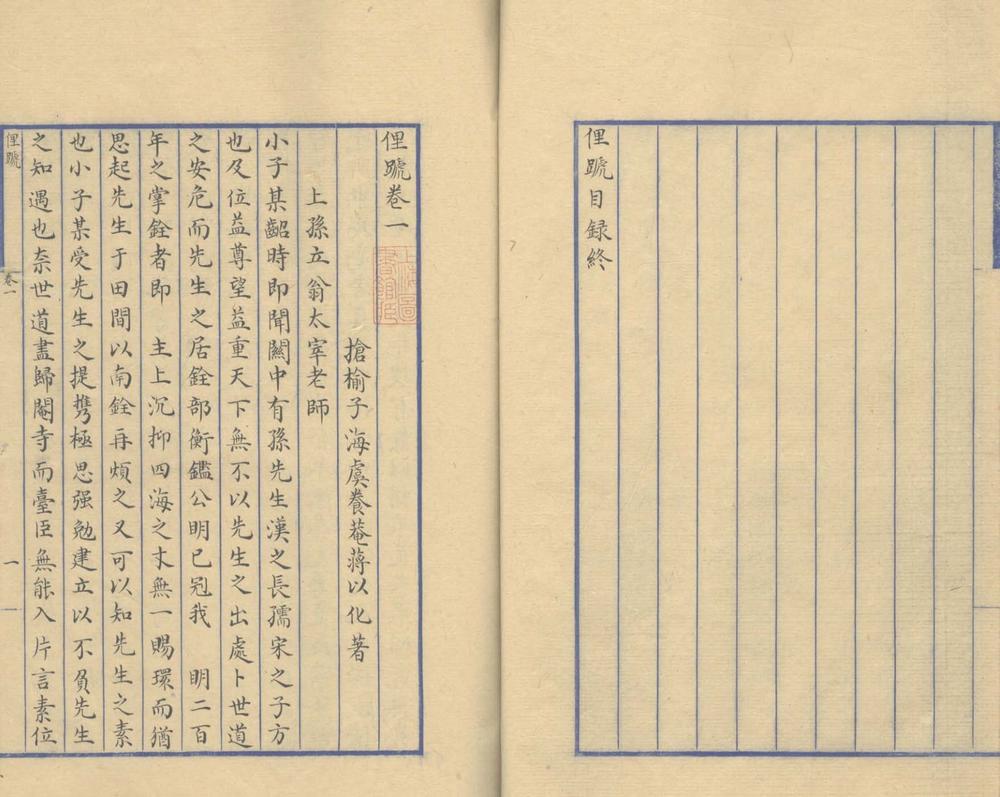 俚㬦目録終
俚㬦卷一
搶榆子海虞養菴蔣以化著
上孫立翁太宰老師
小子某齠時即聞關中有孫先生漢之長孺宋之子方
也及位益尊望益重天下無不以先生之出處卜世道
之安危而先生之居銓部衡鑑公明已冠我 明二百
年之掌銓者即 主上沉抑四海之才無一賜環而猶
思起先生于田間以南銓再煩之又可以知先生之素
也小子某受先生之提携極思强勉建立以不負先生
之知遇也柰世道盡歸閹寺而臺臣無能入片言素位
卷一
一
上海圖書館藏